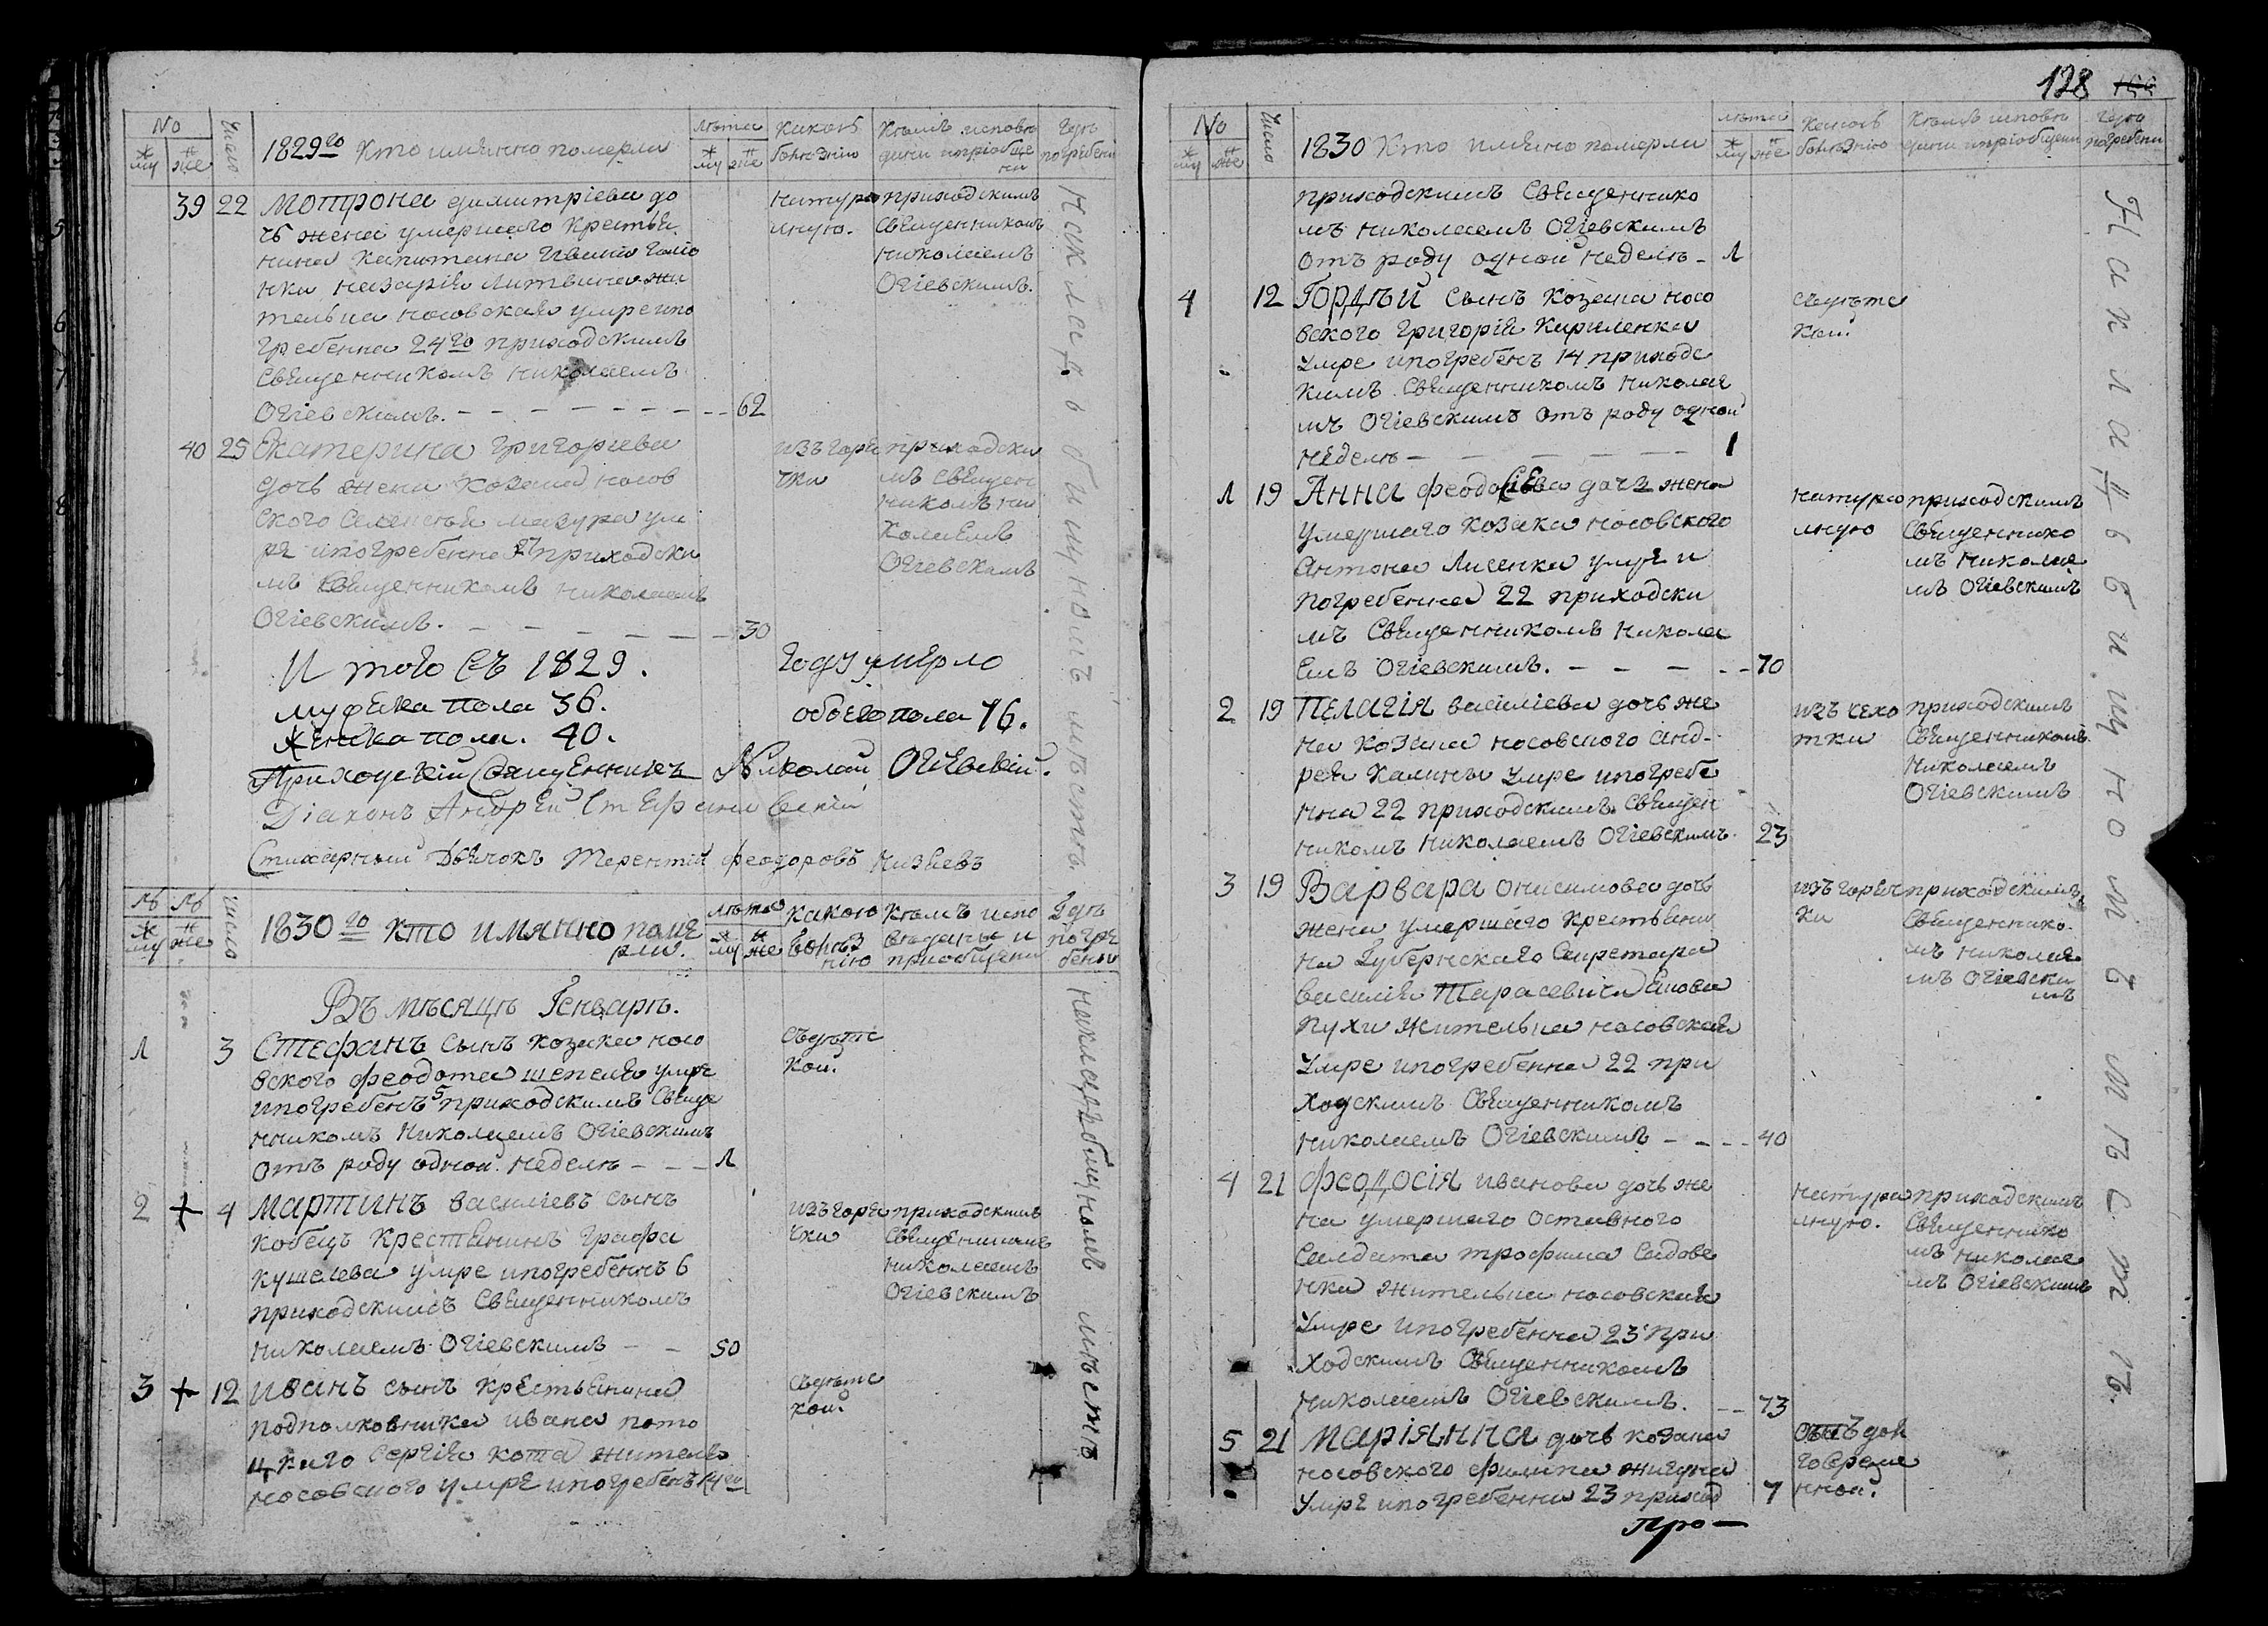 No
Число
1829го Кто имянно померли
Лѣта
Какою
болѣзнію
Кѣмъ исповѣ
дани и пріобще
ни
Гдѣ
погребени
му
же
му
же
39 22 Мотрона димитріева до
чь жена умершаго Крестья
нина Капитана Ивана
нки Назарія Литвина жи
тельна носовская умре ипо
гребенна 24го приходскимъ
Священникомъ Николаемъ
Огіевскимъ. 62
натура
лную.
приходскимъ
Священникомъ
Николаемъ
Огіевскимъ.
40 25 Екатерина Григоріева
дочь жена Козака носов
ского Мазура ум
ре ипогребенна 27 приходски
мъ Священникомъ Николаемъ
Огіевскимъ. 30
изъ горя
чки
приходски
мъ Священ
никомъ Ни
колаемъ
Огіевскимъ
Итого Съ 1829. году умерло
мужска пола 36. обоего пола 76.
женска пола. 40.
Приходскій Священникъ Николай Огіевскій.
Діаконъ Андрей Стефановскій
Стихарный Дьячокъ Терентій Феодоровъ Низѣевъ
На кладбищномъ мѣстѣ.
№ №
му же
Число
1830го Кто имянно поме
рли.
Лѣта
му же
Какою
болѣз
нію
Кѣмъ испо
вѣданы и
приобщени
Гдѣ
погре
бены
Въ мѣсяцѣ Генварѣ.
1 3 Стефанъ сынъ козака носо
вского Феодота Шепеля умре
ипогребенъ 5 приходскимъ Свяще
нникомъ Николаемъ Огіевскимъ
отъ роду одной недели 1
Съдѣтс
кой.
2 + 4 Мартинъ Василіевъ сынъ
Кобецъ Крестьянинъ Графа
Кушелева умре ипогребеннъ 6
приходскимъ Священникомъ
Николаемъ Огіевскимъ 50
изъ горя
чки
приходскимъ
Священникомъ
Николаемъ
Огіевскимъ
3 + 12 Иванъ сынъ крестьянина
подполковника Ивана пото
цкаго Сергія Кота жителя
носовского умре ипогребенъ 14го
Съдѣтс
кой.
на кладбищномъ мѣстѣ
128
No
му же
Число
1830 Кто имянно померли
лѣта
му же
Какою
болѣзнію
Кѣмъ исповѣ
дани ипріобщени
Гдѣ
погребени
приходскимъ Священнико
мъ Николаемъ Огіевскимъ
отъ роду одной недели 1
4 12 Гордѣй сынъ Козака носо
вского Григорія Кириленка
умре ипогребенъ 14 приходс
кимъ Священникомъ Николае
мъ Огіевскимъ отъ роду одной
недели 1
Съдѣтс
кой.
1 19 Анна Феодосіева дочь жена
умершаго козака носовского
Антона Лисенка умре и
погребенна 22 приходски
мъ Священникомъ Никола
емъ Огіевскимъ. 70
натура
лную
приходскимъ
Священнико
мъ Николае
мъ Огіевскимъ
2 19 Пелагія Василіева дочь же
на козака носовского Анд-
рея Калины умре ипогребе
нна 22 приходскимъ Священ
никомъ Николаемъ Огіевскимъ. 23
изъ
приходскимъ
Священникомъ
Николаемъ
Огіевскимъ
3 19 Варвара Онисимова дочь
жена умершаго крестьяни
на Губернскаго Секретара
Василія Тарасевича
жительна носовская
умре ипогребенна 22 при
ходскимъ Священникомъ
Николаемъ Огіевскимъ 40
изъ горяч
ки
приходскимъ
Священнико
мъ Николае
мъ Огіевски
мъ
4 21 Феодосія Иванова дочь же
на умершаго отставного
Салдата Трофима Садове
нка жительна носовская
умре ипогребенна 23 при
ходскимъ Священникомъ
Николаемъ Огіевскимъ. 73
натура
лную.
приходскимъ
Священнико
мъ Николае
мъ Огіевскимъ
5 21 Маріянна дочь козака
носовского Филипа Жигуна
умре ипогребенна 23 приход 7
нной.
про—
На кладбищномъ мѣстѣ.